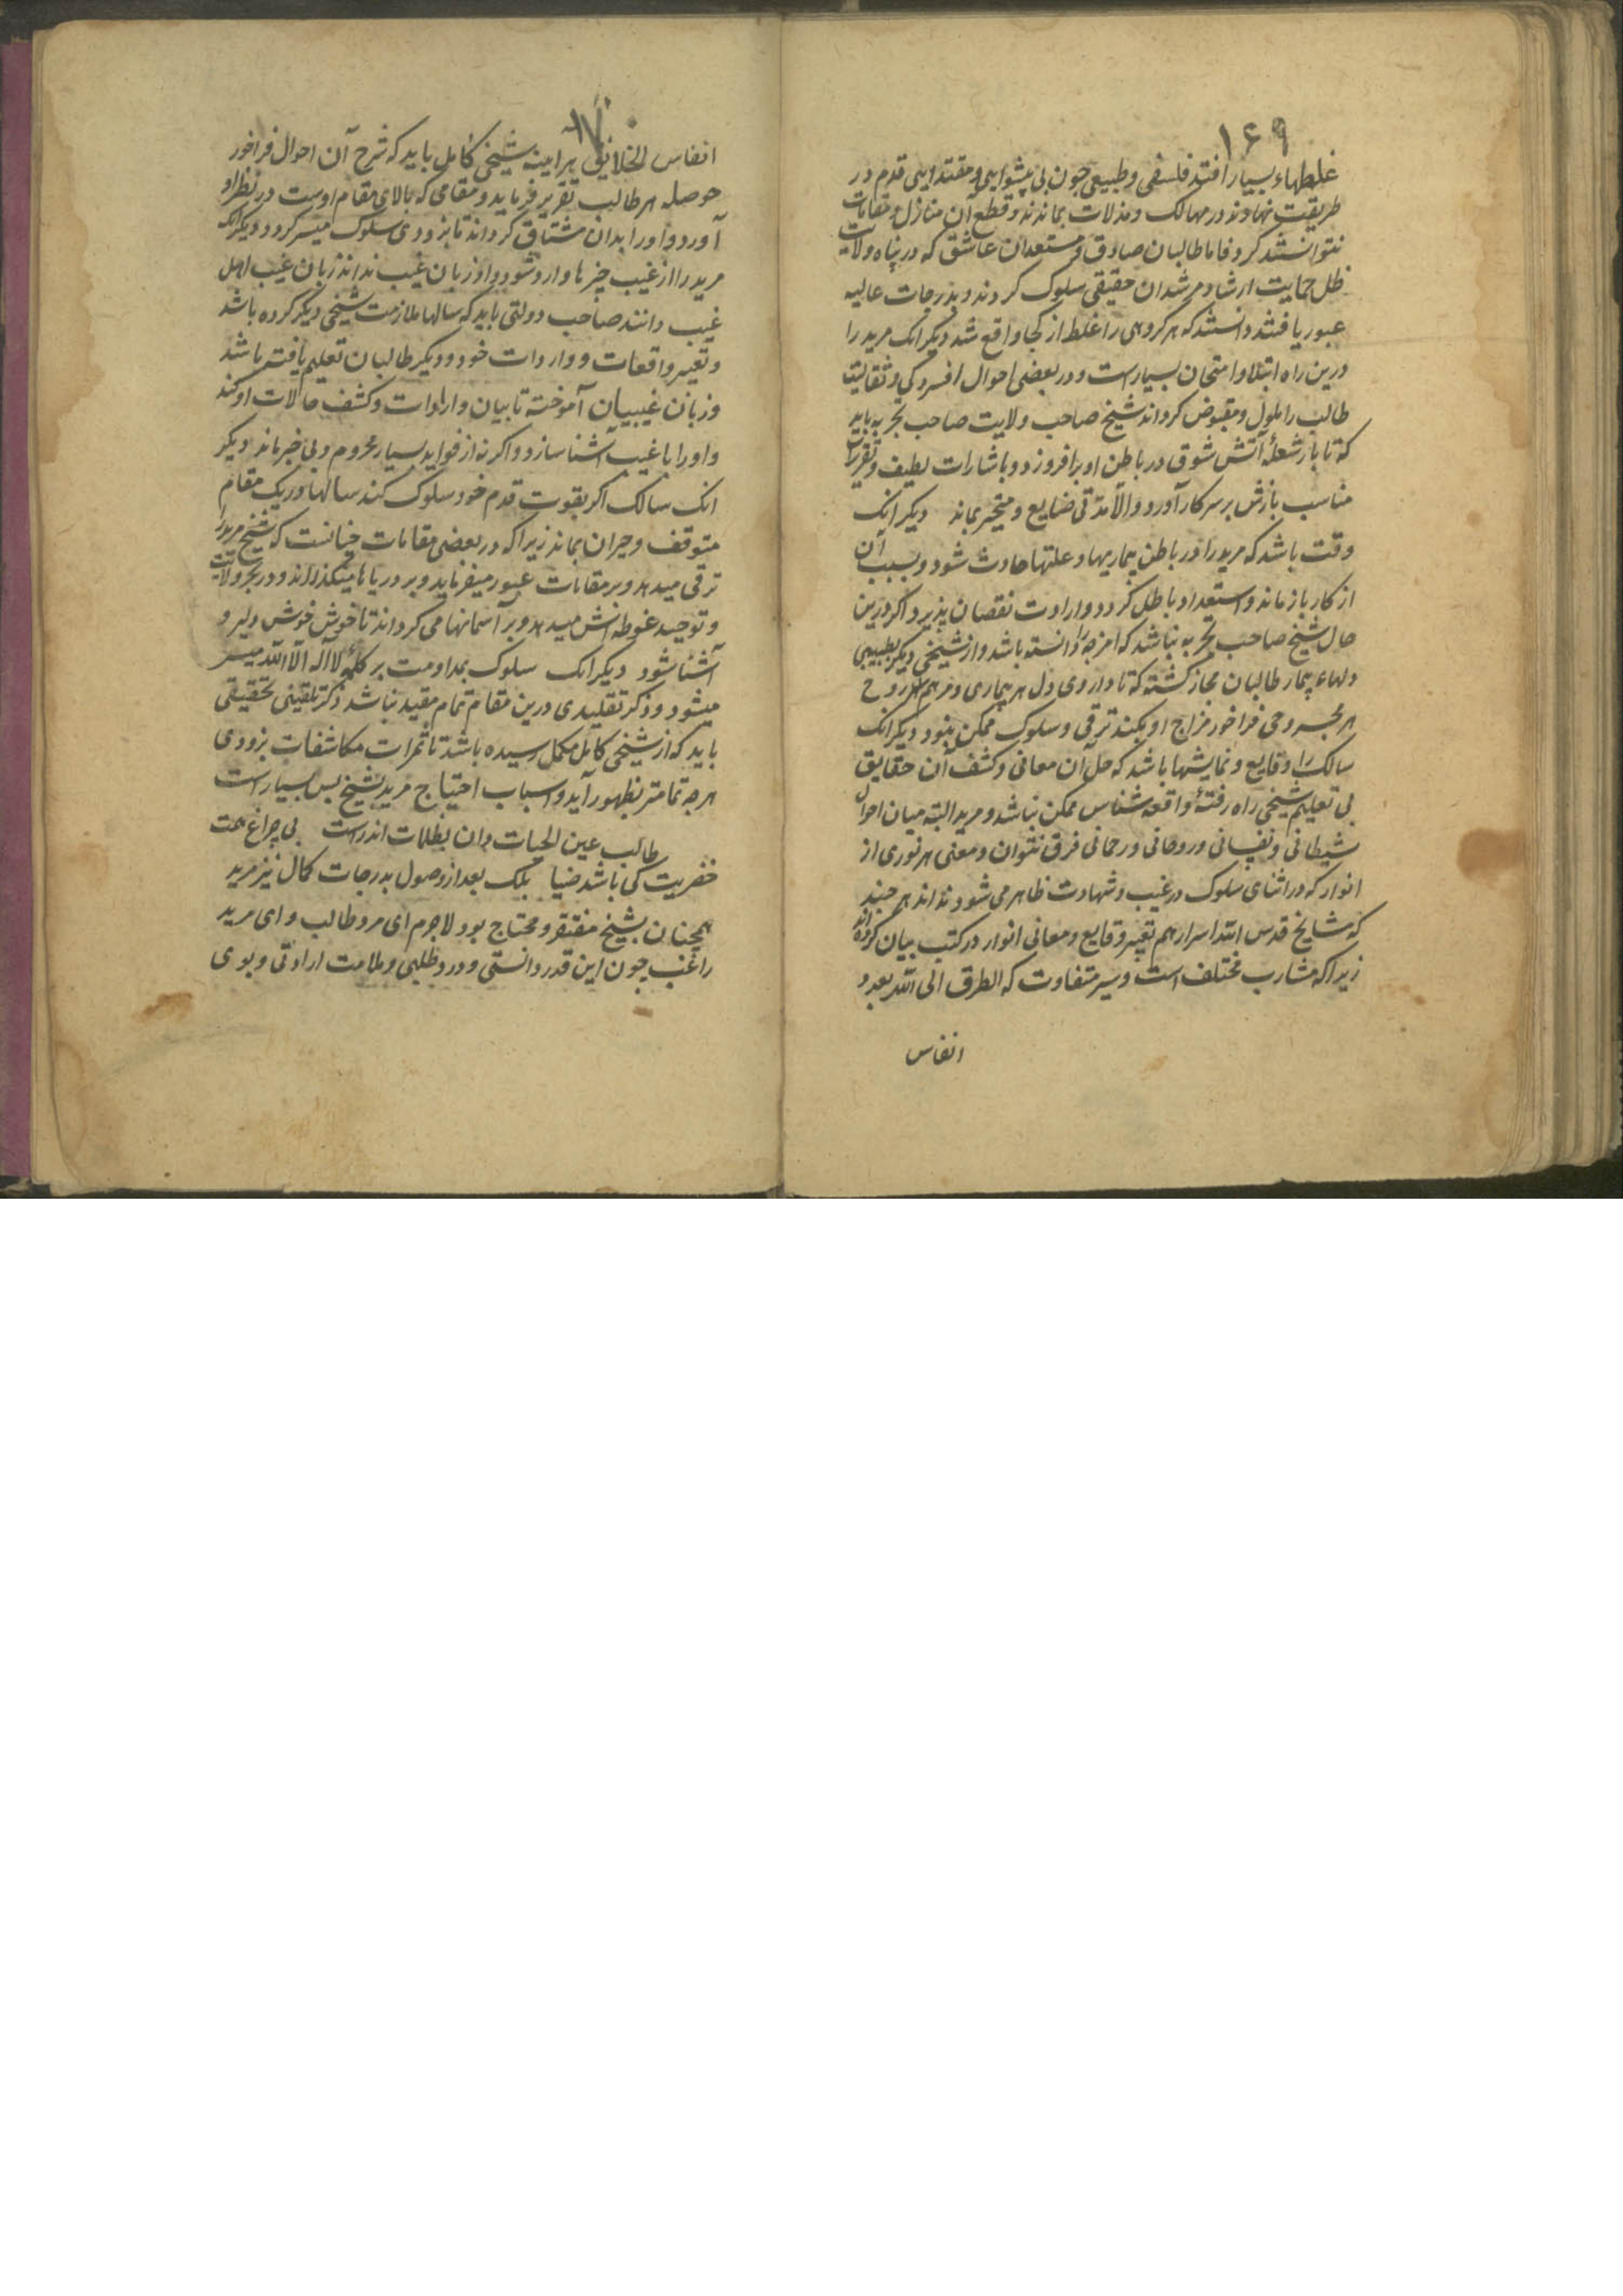 ۱۶۹
غلطهاء بسیار افتد فلسفی و طبیعی جون بی پیشوایی و مقتدایی قدم در
طریقت نهادند در مهالک و مذلات بماندند و قطع آن منازل و مقامات
نتوانستند کرد فاما طالبان صادق و مستعدان عاشق که در پناه ولایت
ظل حمایت ارشاد مرشدان حقیقی سلوک کردند و بدرجات عالیه
عبور یافتند دانستند که هر کروهی را غلط از کجا واقع شد دیکر انک مرید را
درین راه ابتلا و امتحان بسیارست و در بعضی احوال افسردکی و ثقالیت
طالب را ملول و مقبوض کرداند شیخ صاحب ولایت صاحب تجربه باید
که تا باز شعلهٔ آتش شوق در باطن او برافروزد و باشارات لطیف و تقریرات
مناسب بازش بر سر کار آورد و الا مدتی ضایع و متحیر بماند دیکر انک
وقت باشد که مرید را در باطن بیماریها و علتها حادث شود و بسبب آن
از کار باز ماند و استعداد باطل کردد و ارادت نقصان پذیرد اکر درین
حال شیخ صاحب تجربه نباشد که امزجه را دانسته باشد و از شیخی دیکر بطبیبی
دلهاء بیمار طالبان مجاز کشته که تا داروی دل هر بیماری و مرهم هر روح
هر مجروحی فراخور مزاج او بکند ترقی و سلوک ممکن نبود دیکر انک
سالک را وقایع و نمایشها باشد که حل آن معانی و کشف آن حقایق
بی تعلیم شیخی راه رفتهٔ واقعه شناس ممکن نباشد و مرید البته میان احوال
شیطانی و نفسانی و روحانی و رحمانی فرق نتوان و معنی هر نوری از
انوار که در اثنای سلوک در غیب و شهادت ظاهر می شود نداند هر جند
که مشایخ قدس الله اسرارهم تعبیر وقایع و معانی انوار در کتب بیان کرده اند
زیرا که مشارب مختلف است و سیر متفاوت که الطرق الی الله بعدد
انفاس
۱۷۰
انفاس الخلایق هر اینه شیخی کامل باید که شرح آن احوال فراخور
حوصله هر طالب تقریر فرماید و مقامی که بالای مقام اوست در نظر او
آورد و او را بدان مشتاق کرداند تا بزودی سلوک میسر کردد دیکر انک
مرید را از غیب خبرها وارد شود و او زبان غیب نداند زبان غیب اهل
غیب دانند صاحب دولتی باید که سالها ملازمت شیخی دیکر کرده باشد
و تعبیر واقعات و واردات خود و دیکر طالبان تعلیم یافته باشد
و زبان غیبیان آموخته تا بیان واردات و کشف حالات او کند
و او را با غیب آشنا سازد و اکر نه از فواید بسیار محروم و بی خبر ماند دیکر
انک سالک اکر بقوت قدم خود سلوک کند سالها در یک مقام
متوقف و حیران بماند زیرا که در بعضی مقامات چنانست که شیخ مرید را
ترقی میدهد و بر مقامات عبور میفرماید و بر دریاها میکذراند و در بحر ولایت
و توحید غوطه اش میدهد و بر آسمانها می کرداند تا خوش خوش دلیر و
آشنا شود دیکر انک سلوک بمداومت بر کلمهٔ لا اله الا الله میسر
میشود و ذکر تقلیدی درین مقام تمام مقید نباشد ذکر تلقینی تحقیقی
باید که از شیخی کامل مکمل رسیده باشد تا ثمرات مکاشفات بزودی
هرجه تمامتر بظهور آید و اسباب احتیاج مرید بشیخ بس بسیارست
طالب عین الحیات دان بظلمات اندرست بی چراغ همت
خضریت کی باشد ضیا بلک بعد از وصول بدرجات کمال نیز مرید
همچنان بشیخ مفتقر و محتاج بود لاجرم ای مرد طالب و ای مرید
راغب جون این قدر دانستی و درد طلبی و ملامت ارادتی و بوی